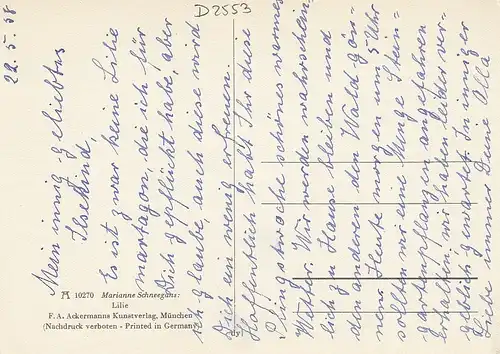 D2553
22.5.58
Mein innig geliebtes
Ilsekind,
Es ist zwar keine Lilie
martagon, die ich für
Dich gepflückt habe, aber
ich glaube, auch diese wird
Dich ein wenig erfreuen.
Hoffentlich habt Ihr diese
Pfingstwoche schönes warmes
Wetter. Wir werden wahrschein-
lich zu Hause bleiben und
den anderen den Wald gön-
nen. Heute morgen um 5 Uhr
sollten wir eine Menge Stein-
gartenpflanzen angefahren
erhalten, wir haben leider ver-
geblich gewartet. In inniger
Liebe immer Deine Olla
A 10270 Marianne Schneegans:
Lilie
F. A. Ackermanns Kunstverlag, München
(Nachdruck verboten - Printed in Germany)